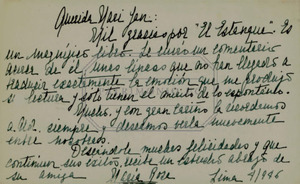 Querida Mari Jan:
Mil gracias por "El Estanque". Es
un magnífico libro. Le envío un comentario
acerca de él, unas líneas que no han llegado a
traducir exactamente la emoción que me produjo
su lectura y solo tienen el mérito de lo espontáneo.
Mucho y con gran cariño la recordamos
a Ud. siempre y deseamos verla nuevamente
entre nosotros.
Deseándole muchas felicidades y que
continúen sus éxitos, recibe un cariñoso abrazo de
su amiga María Rosa Lima 4/946